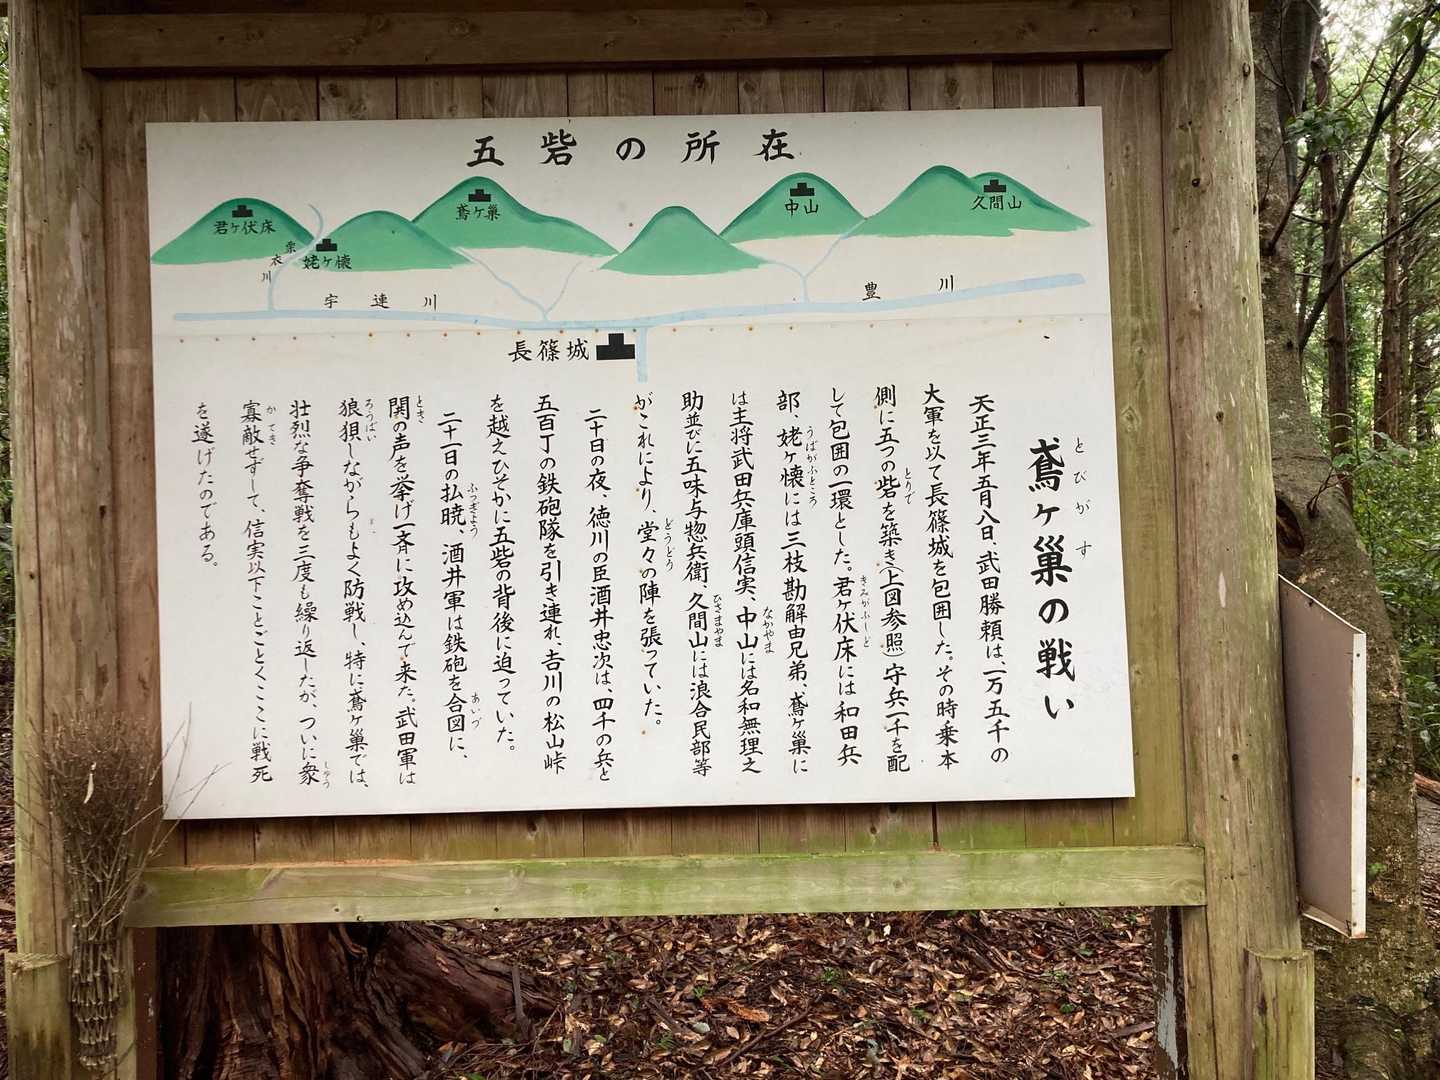 五砦の所在
君ヶ伏床
姥ヶ懐
鳶ヶ巣
中山
久間山
栗衣川
宇連川
豊川
長篠城
鳶ヶ巣の戦い
とびがす
天正三年五月八日、武田勝頼は、一万五千の
大軍を以て長篠城を包囲した。その時乗本
側に五つの砦を築き(上図参照)守兵一千を配
とりで
して包囲の一環とした。君ヶ伏床には和田兵
きみがふしど
部、姥ヶ懐には三枝勘解由兄弟、鳶ヶ巣に
うばがふところ
は主将武田兵庫頭信実、中山には名和無理之
なかやま
助並びに五味与惣兵衛、久間山には浪合民部等
ひさまやま
がこれにより、堂々の陣を張っていた。
どうどう
二十日の夜、徳川の臣酒井忠次は、四千の兵と
五百丁の鉄砲隊を引き連れ、吉川の松山峠
を越えひそかに五砦の背後に迫っていた。
二十一日の払暁、酒井軍は鉄砲を合図に、
ふつぎょう
あいづ
関の声を挙げ一斉に攻め込んで来た。武田軍は
とき
狼狽しながらもよく防戦し、特に鳶ヶ巣では、
ろうばい
壮烈な争奪戦を三度も繰り返したが、ついに衆
しゅう
寡敵せずして、信実以下ことごとくここに戦死
かてき
を遂げたのである。